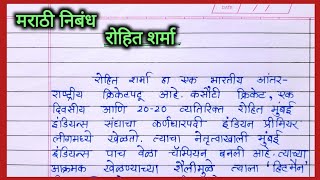 मराठी निबंध
रोहित शर्मा
रोहित शर्मा हा एक भारतीय आंतर-
राष्ट्रीय क्रिकेटपटू आहे. कसौटी क्रिकेट, एक
दिवसीय आणि 20-20 व्यतिरिक्त रोहित मुंबई
इंडियन्स संघाचा कर्णधारपदी इंडियन प्रीमियर
लीगमध्ये खेळतो. त्याचा नेतृत्वाखाली मुंबई
इंडियन्स पाच वेळा चॅम्पियन बनली आहे. त्याच्या
आक्रमक खेळण्याच्या शैलीमुळे त्याला 'हिटमॅन'